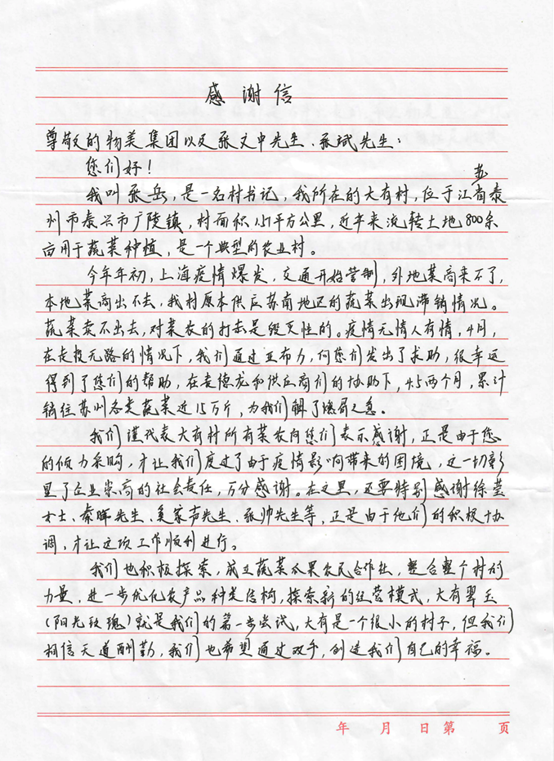 感谢信
尊敬的物美集团以及张文中先生、张斌先生：
您们好！
我叫张岳，是一名村书记，我所在的大有村，位于江苏省泰
州市泰兴市广陵镇，村面积1.57平方公里，近年来流转土地800余
亩用于蔬菜种植，是一个典型的农业村。
今年年初，上海疫情爆发，交通开始管制，外地菜商来不了，
本地菜商出不去，我村原本供应苏南地区的蔬菜出现滞销情况。
蔬菜卖不出去，对菜农的打击是毁灭性的。疫情无情人有情，4月，
在走投无路的情况下，我们通过亚布力，向您们发出了求助，很幸运
得到了您们的帮助，在麦德龙和供应商们的协助下，4.5两个月，累计
销往苏州各类蔬菜近15万斤，为我们解了燃眉之急。
我们谨代表大有村所有菜农向您们表示感谢，正是由于您
的倾力采购，才让我们度过了由于疫情影响带来的困境，这一切彰
显了企业崇高的社会责任，万分感谢。在这里，还要特别感谢徐莹
女士、秦晖先生、吴家声先生、张帅先生等，正是由于他们的积极协
调，才让这项工作顺利进行。
我们也积极探索，成立蔬菜瓜果农民合作社，整合整个村的
力量，进一步优化农产品种类结构，探索新的经营模式，大有翠玉
（阳光玫瑰）就是我们的第一步尝试，大有是一个很小的村子，但我们
相信天道酬勤，我们也希望通过双手，创造我们自己的幸福。
年 月 日 第 页